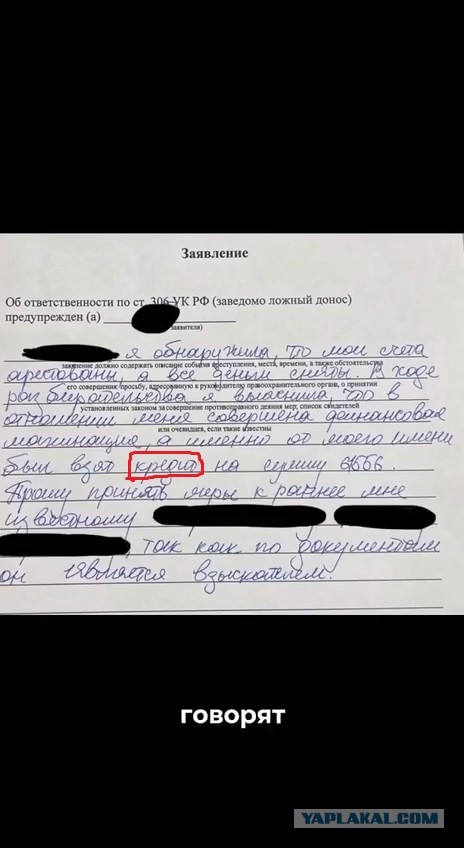 Заявление
Об ответственности по ст. 306 УК РФ (заведомо ложный донос)
предупрежден (а)
заявителя)
я обнаружила, что мои счета
заявление должно содержать описание события преступления, места, времени, а также обстоятельства
арестованы, а все деньги сняты. В ходе
его совершения, просьбу, адресованную к руководителю правоохранительного органа, о принятии
разбирательства я выяснила, что в
установленных законом за совершение противоправного деяния мер, список свидетелей
отношении меня совершена финансовая
или очевидцев, если такие известны
махинация, а именно от моего имени
был взят кредит на сумму
Прошу принять меры к раннее мне
известному
так как по документам
он является взыскателем.
говорят
YAPLAKAL.COM